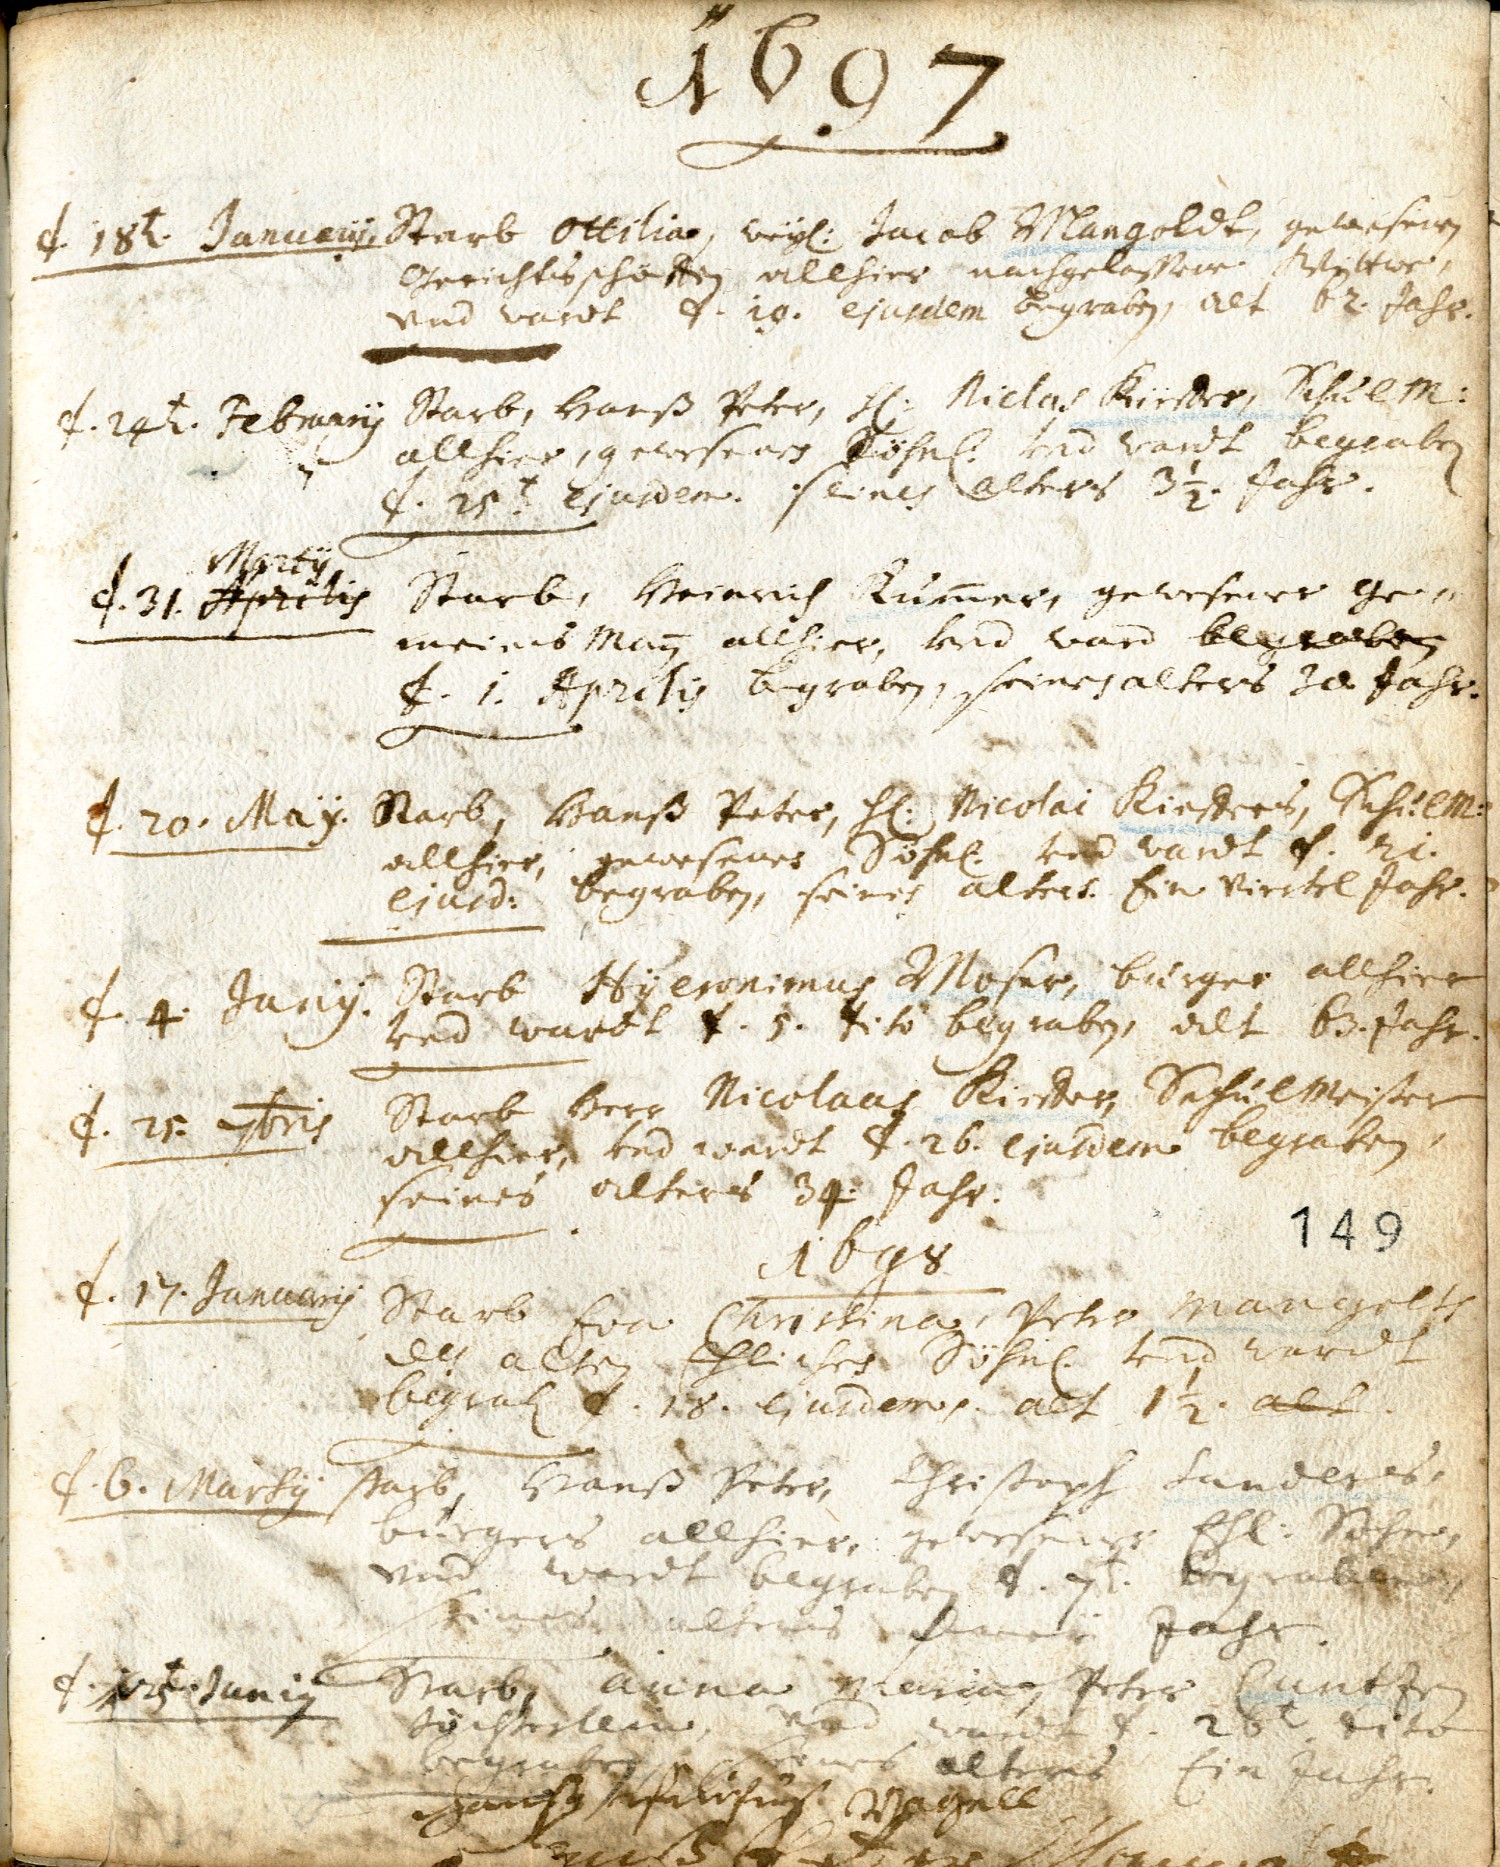 1697
d. 18t. Januarij, Starb Ottilia, weyl: Jacob Mangoldt, gewesenen
Gerichtsschöffen allhier nachgelassene Wittwe,
vnd wardt d. 19. ejusdem begraben, alt 62. Jahr.
d. 24t. Februarij Starb, Hanß Peter, H: Niclas Kiester, SchulM:
allhier, gewesenes Söhnl. vnd wardt begraben
d. 25t ejusdem. seines alters 3½. Jahr.
Martij
d. 31. Aprilis Starb, Heinrich Kummer, gewesener Ge-
meines Mann allhier, vnd ward begraben
d. 1. Aprilis begraben, seines alters Jahr.
d. 20. Maij. Starb, Hanß Peter, H: Nicolai Kiesters, SchulM:
allhier, gewesenes Söhnl. vnd wardt d. 21.
ejusd: begraben, seines alters Ein Viertel Jahr.
d. 4. Junij. Starb Hyeronimus Moser, burger allhier
vnd wardt d. 5. dito begraben, alt 63. Jahr.
d. 25. 7bris Starb Herr Nicolaus Kiester, SchulMeister
allhier, vnd wardt d. 26. ejusdem begraben,
seines alters 34. Jahr.
149
1698
d. 17. Januarij Starb Eva Christina, Peter Mangolts
des alten Ehliches Söhnl. vnd wardt
begrab d. 18. ejusdem. alt 1½. alt.
d. 6. Martij starb, Hanß Peter, Christoph Landers,
burgers allhier, gewesener Ehl: Sohn,
vnd wardt begraben d. 7t. begraben,
seines alters Jahr.
d. 25t. Junij Starb, Anna Maria, Peter Cuntzen
töchterlein, vnd wardt d. 26t. dito
begraben, seines alters Ein Jahr.
Vogell